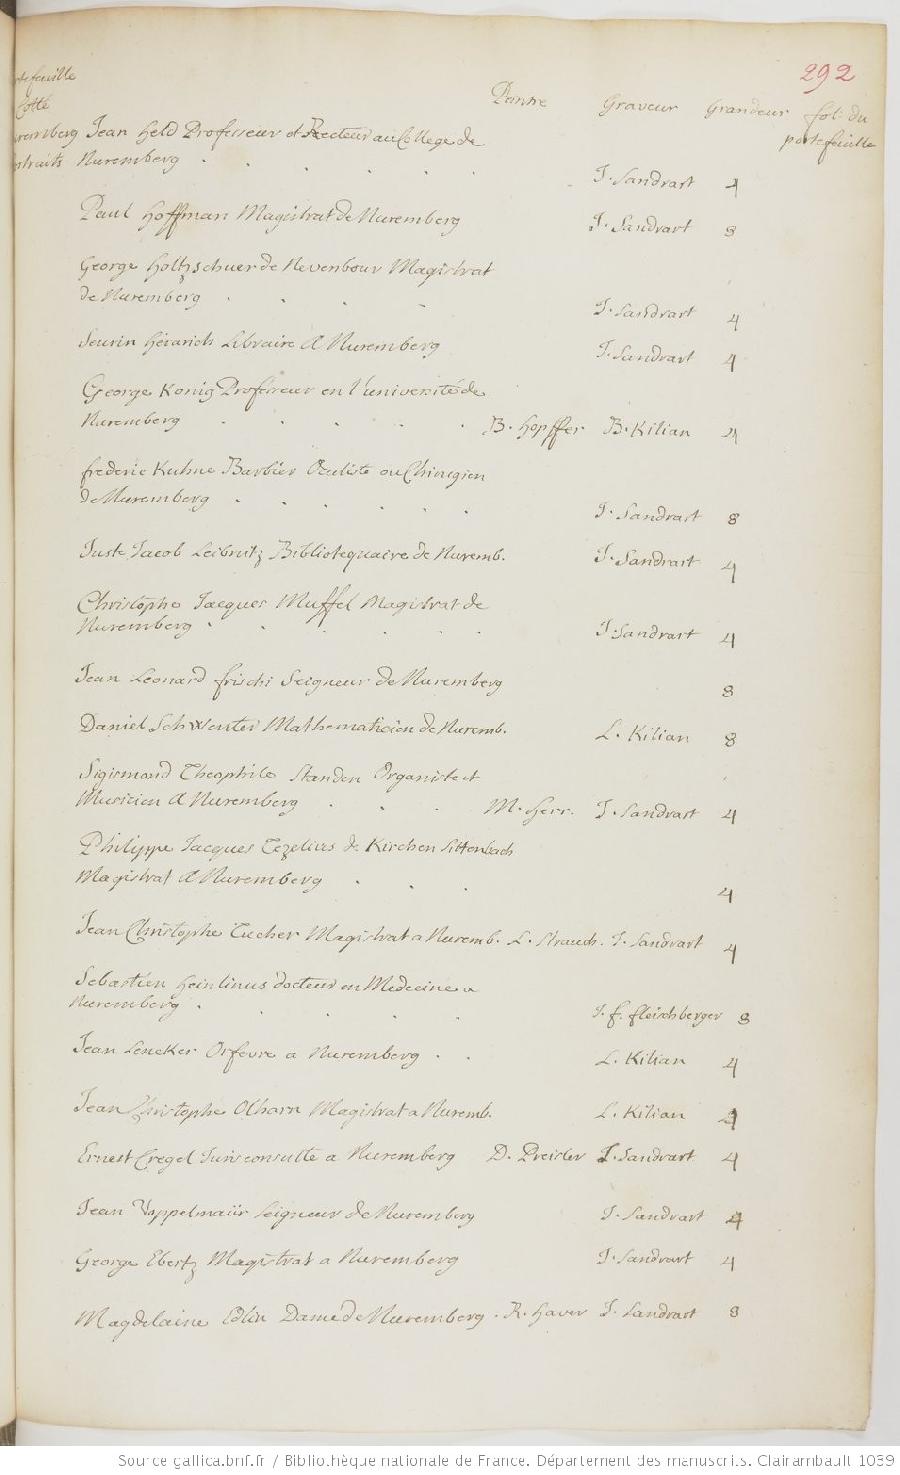 292
Peintre Graveur Grandeur fol. du
portefeuille
Cotté
Nuremberg Jean Held Professeur et Recteur au College de
Nuremberg . . . . . J. Sandrart 4
Paul Hoffman Magistrat de Nuremberg J. Sandrart 8
George Holtzschuer de Nevenbour Magistrat
de Nuremberg . . . . J. Sandrart 4
Libraire A Nuremberg J. Sandrart 4
George Konig Professeur en l'université de
Nuremberg . . . . . B. Hopffer B. Kilian 4
frederic Kuhne Barbier Oculiste ou Chirugien
de Nuremberg . . . . . J. Sandrart 8
Juste Jacob Leibnitz Bibliotequaire de Nuremb. J. Sandrart 4
Christophe Jacques Muffel Magistrat de
Nuremberg . . . . . J. Sandrart 4
Jean Leonard frischi Seigneur de Nuremberg 8
Daniel Schwenter Mathematicien de Nuremb. L. Kilian 8
Sigismond Theophile Standen Organiste et
Musicien A Nuremberg . . . M. Herr. J. Sandrart 4
Philippe Jacques Tezelius de Kirchen Sittenbach
Magistrat A Nuremberg . . . 4
Jean Christophe Tucher Magistrat a Nuremb. L. Strauch. J. Sandrart 4
Sebastien Heinlinus docteur en Medecine a
Nuremberg . . . . . J. f. fleischberger 8
Jean Lencker Orfevre a Nuremberg . . L. Kilian 4
Jean Christophe Olharn Magistrat a Nuremb. L. Kilian 4
Ernest Cregel Jurisconsulte a Nuremberg D. Preisler J. Sandrart 4
Jean Seigneur de Nuremberg J. Sandrart 4
George Ebertz Magistrat a Nuremberg J. Sandrart 4
Magdelaine Edlin Dame de Nuremberg . R. Haver J. Sandrart 8
Source gallica.bnf.fr / Bibliothèque nationale de France. Département des manuscrits. Clairambault 1039